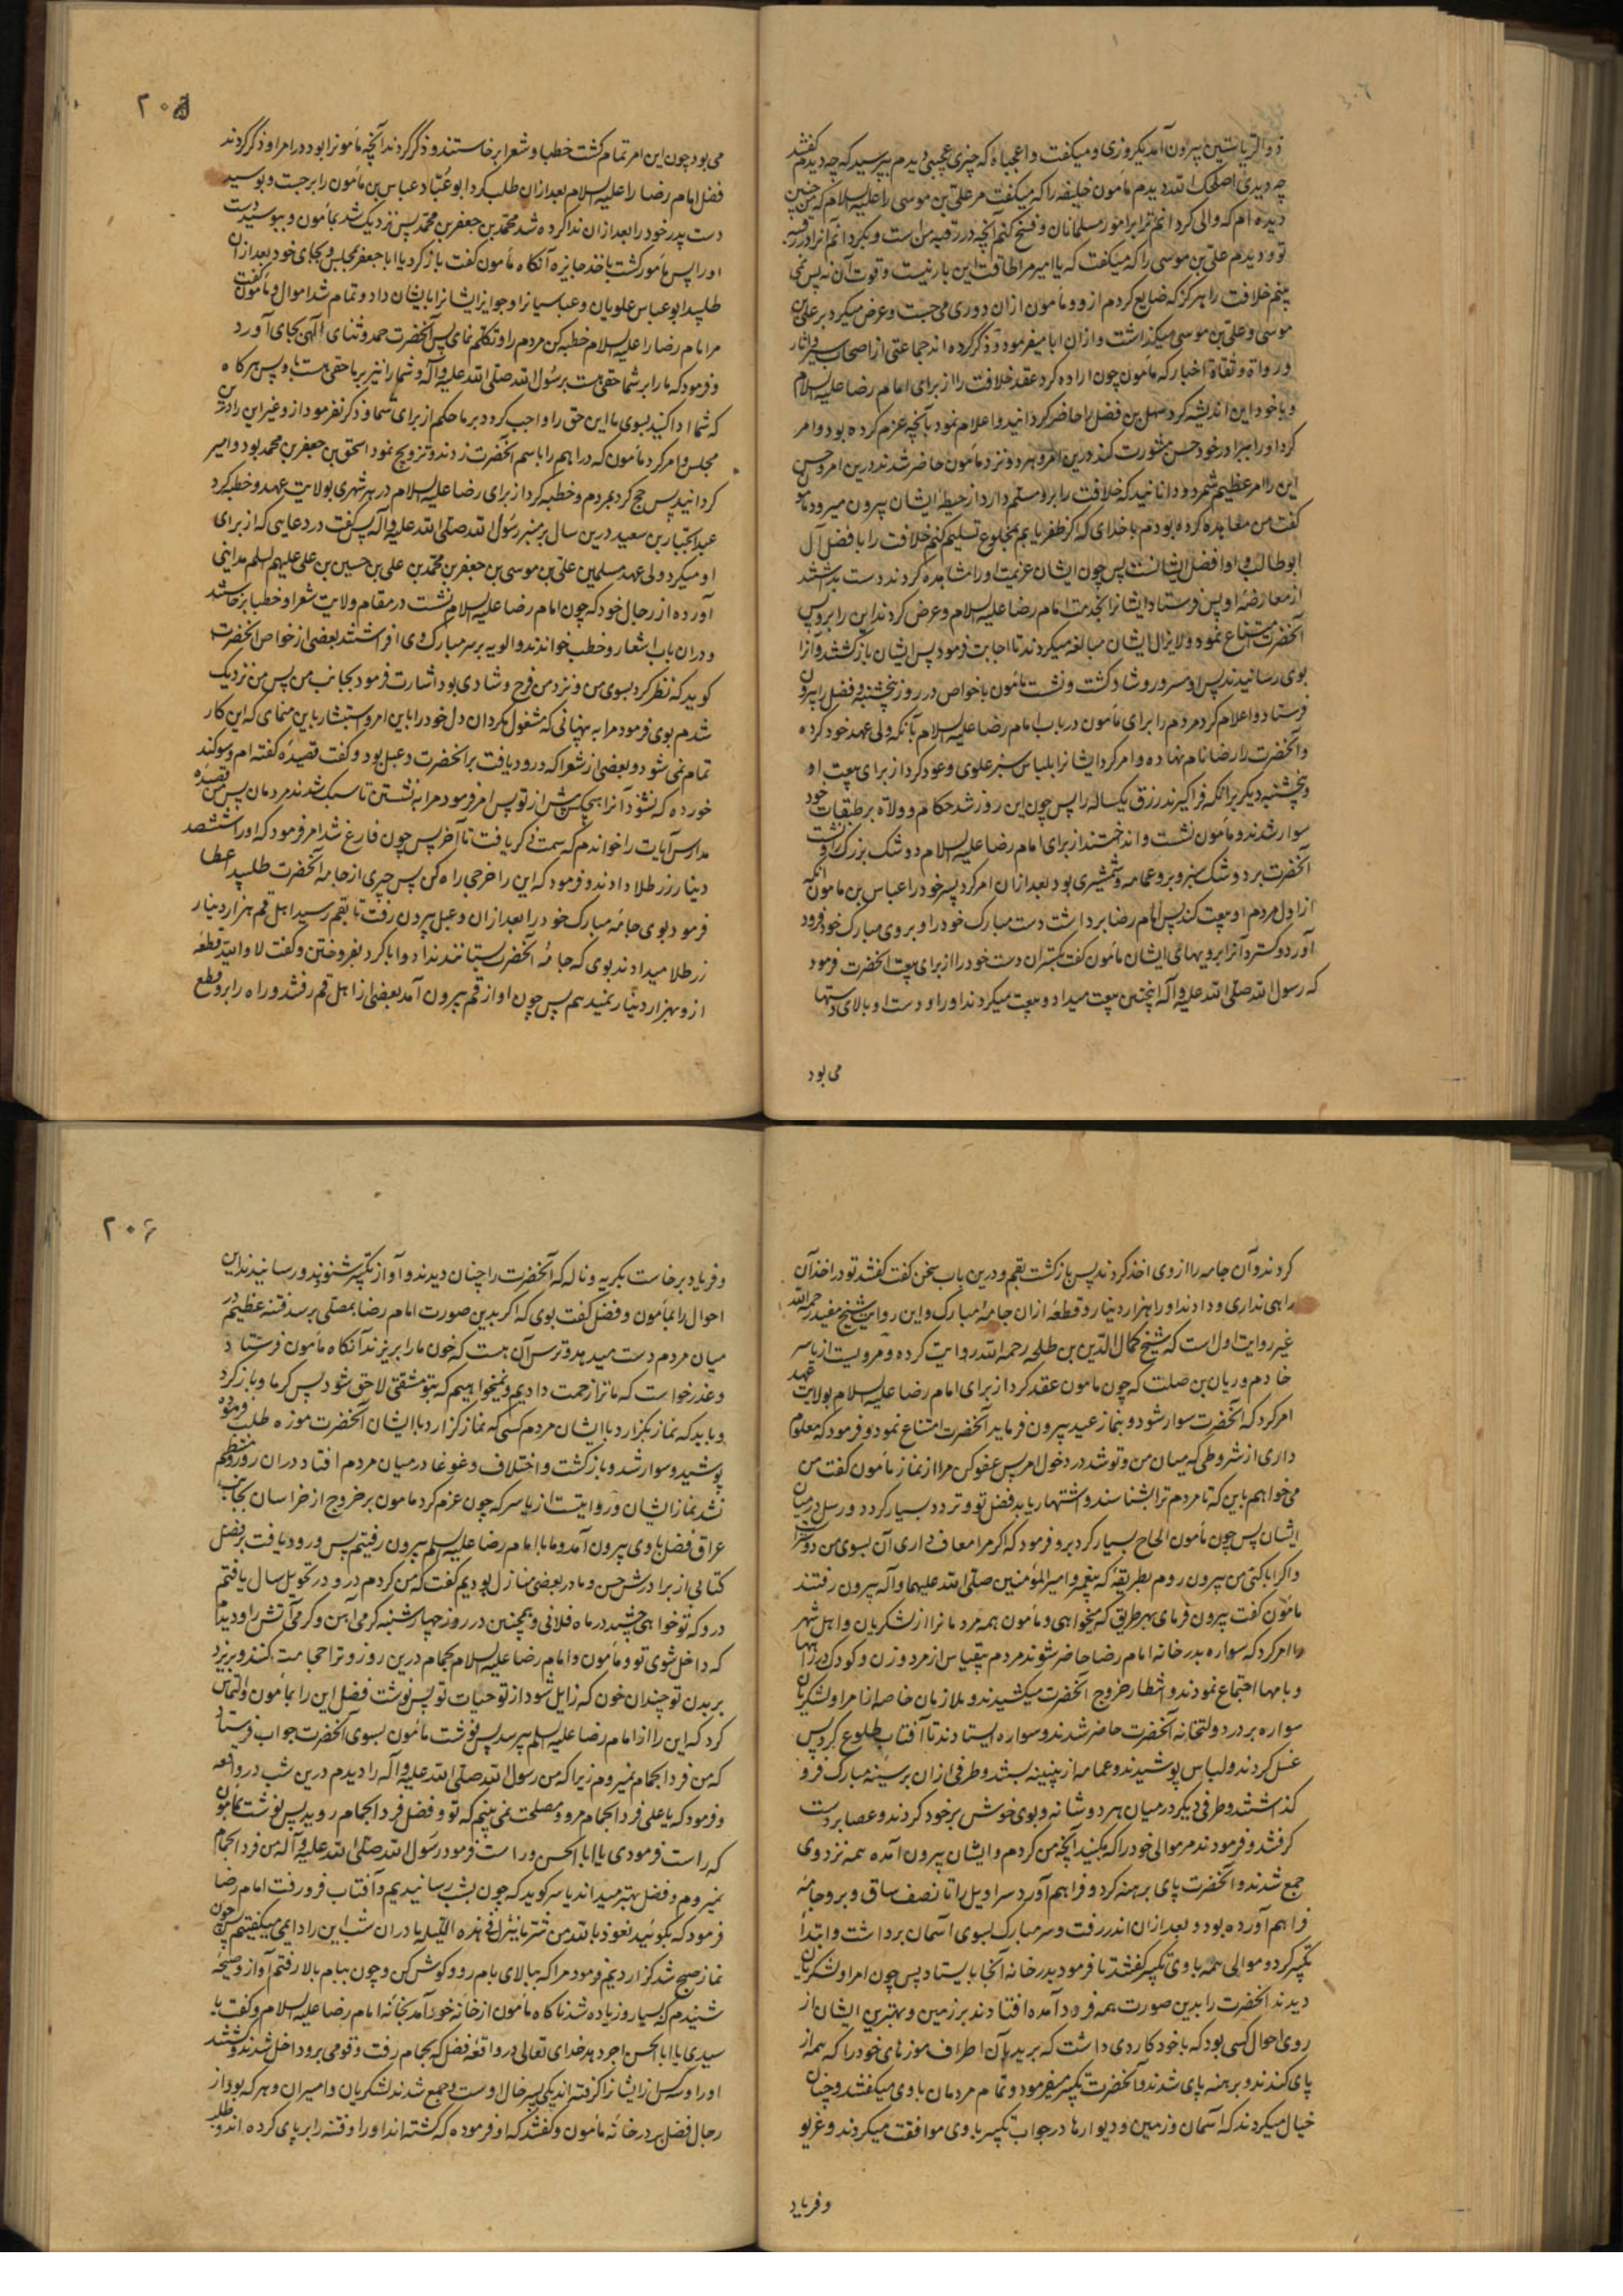 ذوالریاستین بیرون آمد یکروزی و میکفت واعجباه که چیزی عجیبی دیدم بپرسید که چه دیدم کفتند
چه دیدی اصلحک الله دیدم مأمون خلیفه را که میکفت مر علی بن موسی را علیه السلام که من چنین
دیده ام که والی کردانم ترا بر امور مسلمانان و فسخ کنم آنچه در رقبه من است و بکردانم آنرا در رقبه
تو و دیدم علی بن موسی را که میکفت که یا امیر مرا طاقت این بار نیست و قوت آن نه پس نمی
بینم خلافت را هرکز که ضایع کردم از و و مأمون ازان دوری می جست و عرض میکرد بر علی بن
موسی و علی بن موسی میکذاشت و ازان ابا میفرمود و ذکر کرده اند جماعتی از اصحاب سیر و آثار
و رواة و ثقاة اخبار که مأمون چون اراده کرد عقد خلافت را از برای امام رضا علیه السلام
و با خود این اندیشه کرد سهل بن فضل را حاضر کردانید و اعلام نمود بآنچه عزم کرده بود و امر
کرد او را ببرادر خود حسن مشورت کند درین امر و هر دو نزد مأمون حاضر شدند درین امر و حسن
این را امر عظیم شمرد و دانانید که خلافت را برو مسلم دارد از حیطه ایشان بیرون میرود مأمون
کفت من معاهده کرده بودم با خدای که اکر ظفر یابم بمخلوع تسلیم کنم خلافت را بافضل آل
ابوطالب و او افضل ایشانست پس چون ایشان عزیمت او را مشاهده کردند دست بداشتند
از معارضۀ او پس فرستاد ایشانرا بخدمت امام رضا علیه السلام و عرض کردند این را برو پس
آنحضرت امتناع نمود و لایزال ایشان مبالغه میکردند تا اجابت فرمود پس ایشان بازکشتند و آنرا
بوی رسانیدند پس او مسرور و شاد کشت و نشست مأمون با خواص در روز پنجشنبه و فضل را بیرون
فرستاد و اعلام کرد مردم را برای مأمون در باب امام رضا علیه السلام بآنکه ولی عهد خود کرده
و آنحضرت را رضا نام نهاده و امر کرد ایشانرا بلباس سبز علوی و عود کرد از برای بیعت او
پنجشنبه دیکر بر آنکه فراکیرند رزق یکساله را پس چون این روز شد حکام و ولاة بر طبقات خود
سوار شدند و مأمون نشست و انداختند از برای امام رضا علیه السلام دو شک بزرک و نشست
آنحضرت بر دوشک سبز و برو عمامه و شمشیری بود بعد ازان امر کرد پسر خود را عباس بن مامون آنکه
از اول مردم او بیعت کند پس امام رضا برداشت دست مبارک خود را و بروی مبارک خود فرود
آورد و کسترد آنرا برویهای ایشان مأمون کفت بکستران دست خود را از برای بیعت آنحضرت فرمود
که رسول الله صلی الله علیه و آله اینچنین بیعت میداد و بیعت میکردند او را و دست او بالای دستها
می بود
۲۰۵
می بود چون این امر تمام کشت خطبا و شعرا برخاستند و ذکر کردند آنچه مأمونرا بود در امر او ذکر کردند
فضل امام رضا را علیه السلام بعد ازان طلب کرد ابو عباد عباس بن مأمون را برجست و بوسید
دست پدر خود را بعد ازان ندا کرده شد محمد بن جعفر بن محمد پس نزدیک شد بمأمون و ببوسید دست
او را پس مأمور کشت باخذ جایزه آنکاه مأمون کفت باز کرد یا ابا جعفر بمجلس و بجای خود بعد ازان
طلبید ابو عباس علویان و عباسیانرا و جوایز ایشانرا بایشان داد و تمام شد اموال و مأمون کفت
مر امام رضا را علیه السلام خطبه کن مردم را و تکلم نمای پس آنحضرت حمد و ثنای الهی بجای آورد
و فرمود که ما را بر شما حقی هست برسول الله صلی الله علیه و آله و شما را نیز بر ما حقی هست باو پس هرکاه
که شما ادا کنید بسوی ما این حق را واجب کردد بر ما حکم از برای شما و ذکر نفرمود از و غیر این را درین
مجلس و امر کرد مأمون که دراهم را باسم آنحضرت زدند و تزویج نمود اسحق بن جعفر بن محمد بود و امیر
کردانید پس حج کرد بمردم و خطبه کرد از برای رضا علیه السلام در هر شهری بولایت عهد و خطبه کرد
عبدالجبار بن سعید درین سال بر منبر رسول الله صلی الله علیه و آله پس کفت در دعایی که از برای
او میکرد ولی عهد مسلمین علی بن موسی بن جعفر بن محمد بن علی بن حسین بن علی علیهم السلام مداینی
آورده از رجال خود که چون امام رضا علیه السلام نشست در مقام ولایت شعرا و خطبا برخاستند
و دران باب اشعار و خطب خواندند و الویه بر سر مبارک وی افراشتند بعضی از خواص آنحضرت
کوید که نظر کرد بسوی من و نزد من فرح و شادی بود اشارت فرمود بجانب من پس من نزدیک
شدم بوی فرمود مرا به پنهانی که مشغول مکردان دل خود را باین امر و استبشار باین منمای که این کار
تمام نمی شود و بعضی از شعرا که ورود یافت بر آنحضرت دعبل بود و کفت قصیده کفته ام و سوکند
خورده که نشنود آنرا هیچکس پیش از تو پس امر فرمود مرا به نشستن تا سبک شدند مردمان پس من قصیده
مدارس آیات را خواندم که سمت ذکر یافت تا آخر پس چون فارغ شد امر فرمود که او را ششصد
دینار زر طلا دادند و فرمود که این را خرجی راه کن پس چیزی از جامه آنحضرت طلبید اعطا
فرمود بوی جامه مبارک خود را بعد ازان دعبل بیرون رفت تا بقم رسید اهل قم هزار دینار
زر طلا میدادند بوی که جامه آنحضرت بستانند نداد و ابا کرد بفروختن و کفت لا والله قطعه
از و بهزار دینار نمیدهم پس چون او از قم بیرون آمد بعضی از اهل قم رفتند و راه را برو قطع
کردند و آن جامه را از وی اخذ کردند پس بازکشت بقم و درین باب سخن کفت کفتند تو در اخذ آن
راهی نداری و دادند او را هزار دینار و قطعه ازان جامۀ مبارک و این روایت شیخ مفید رحمه الله
غیر روایت اول است که شیخ کمال الدین بن طلحه رحمه الله روایت کرده و مرویست از یاسر
خادم و ریان بن صلت که چون مامون عقد کرد از برای امام رضا علیه السلام بولایت عهد
امر کرد که آنحضرت سوار شود و بنماز عید بیرون فرماید آنحضرت امتناع نمود و فرمود که معلوم
داری از شروطی که میان من و تو شد در دخول امر پس عفو کن مرا از نماز مأمون کفت من
می خواهم باین که تا مردم ترا بشناسند و اشتهار یابد فضل تو و تردد بسیار کردد و رسل در میان
ایشان پس چون مأمون الحاح بسیار کرد برو فرمود که اکر مرا معاف داری آن بسوی من دوستر است
و اکر ابا کنی من بیرون روم بطریقه که پیغمبر و امیرالمؤمنین صلی الله علیهما و آله بیرون رفتند
مأمون کفت بیرون فرمای بهر طریق که میخواهی و مأمون همه مردمانرا از لشکریان و اهل شهر
را امر کرد که سواره بدر خانه امام رضا حاضر شوند مردم بیقیاس از مرد و زن و کودک در راهها
و بامها اجتماع نمودند و انتظار خروج آنحضرت میکشیدند و ملازمان خاصه از امرا و لشکریان
سواره بر در دولتخانه آنحضرت حاضر شدند و سواره ایستادند تا آفتاب طلوع کرد پس
غسل کردند و لباس پوشیدند و عمامه از پنبینه بستند و طرفی ازان بر سینه مبارک فرو
کذاشتند و طرفی دیکر در میان هر دو شانه و بوی خوش بر خود کردند و عصا بر دست
کرفتند و فرمودند مر موالی خود را که بکنید آنچه من کردم و ایشان بیرون آمده همه نزد وی
جمع شدند و آنحضرت پای برهنه کرد و فراهم آورد سراویل را تا نصف ساق و برو جامه
فراهم آورده بود و بعد ازان اندر رفت و سر مبارک بسوی آسمان برداشت و ابتدا
تکبیر کرد و موالی همه با وی تکبیر کفتند تا فرمود بدر خانه آنجا بایستاد پس چون امرا و لشکریان
دیدند آنحضرت را بدین صورت همه فرود آمده افتادند بر زمین و بهترین ایشان از
روی احوال کسی بود که با خود کاردی داشت که برید بآن اطراف موزهای خود را که همه از
پای کندند و برهنه پای شدند و آنحضرت تکبیر میفرمود و تمام مردمان با وی میکفتند و چنان
خیال میکردند که آسمان و زمین و دیوارها در جواب تکبیر با وی موافقت میکردند و غریو
و فریاد
۲۰۶
و فریاد برخاست بکریه و ناله که آنحضرت را چنان دیدند و آواز تکبیر شنودند و رسانیدند این
احوال را بمأمون و فضل کفت بوی که اکر بدین صورت امام رضا بمصلی برسد فتنه عظیم در
میان مردم دست میدهد و ترس آن هست که خون ما را بریزند آنکاه مأمون فرستاد
و عذر خواست که ما ترا زحمت دادیم و نمیخواهیم که بتو مشقتی لاحق شود پس کرما و باز کرد
و باید که نماز بکزارد با ایشان مردم کسی که نماز کزارد با ایشان آنحضرت موزه طلب فرموده
پوشید و سوار شد و بازکشت و اختلاف و غوغا در میان مردم افتاد دران روز و منتظم
نشد نماز ایشان و روایتست از یاسر که چون عزم کرد مامون بر خروج از خراسان بجانب
عراق فضل با وی بیرون آمد و ما با امام رضا علیه السلام بیرون رفتیم پس ورود یافت بر فضل
کتابی از برادرش حسن و ما در بعضی منازل بودیم کفت که من کردم درو در تحویل سال یافتم
درو که تو خواهی چشید در ماه فلانی و همچنین در روز چهارشنبه کرمی آهن و کرمی آتش را و دیدم
که داخل شوی تو و مأمون و امام رضا علیه السلام بحمام درین روز و ترا حجامت کنند و بریزد
بر بدن تو چندان خون که زایل شود از تو حیات تو پس نوشت فضل این را بمأمون و التماس
کرد که این را از امام رضا علیه السلام پرسد پس نوشت مأمون بسوی آنحضرت جواب فرستاد
که من فردا بحمام نمیروم زیرا که من رسول الله صلی الله علیه و آله را دیدم درین شب در واقعه
و فرمود که یا علی فردا بحمام مرو و مصلحت نمی بینم که تو و فضل فردا بحمام روید پس نوشت مأمون
که راست فرمودی یا ابا الحسن و راست فرمود رسول الله صلی الله علیه و آله من فردا بحمام
نمیروم و فضل بهتر میداند یاسر کوید که چون بشب رسانیدیم و آفتاب فرو رفت امام رضا
فرمود که بکوئید نعوذ بالله من شر ما ینزل فی هذه اللیله ما دران شب این را دایمی میکفتیم پس چون
نماز صبح شد کزاردیم فرمود مرا که ببالای بام رو و کوش کن و چون ببام بالا رفتم آواز و صیحه
شنیدم که بسیار و زیاده شد ناکاه مأمون از خانه خود آمد بخانه امام رضا علیه السلام و کفت یا
سیدی یا ابا الحسن اجر دهد خدای تعالی در واقعه فضل که بحمام رفت و قومی برو داخل شدند و کشتند
او را و سه کس از ایشانرا کرفته اند یکی پسر خال اوست و جمع شدند لشکریان و امیران و هر که بود از
رجال فضل بر در خانه مأمون و کفتند که او فرموده که کشته اند او را و فتنه را بر پای کرده اند و طلب